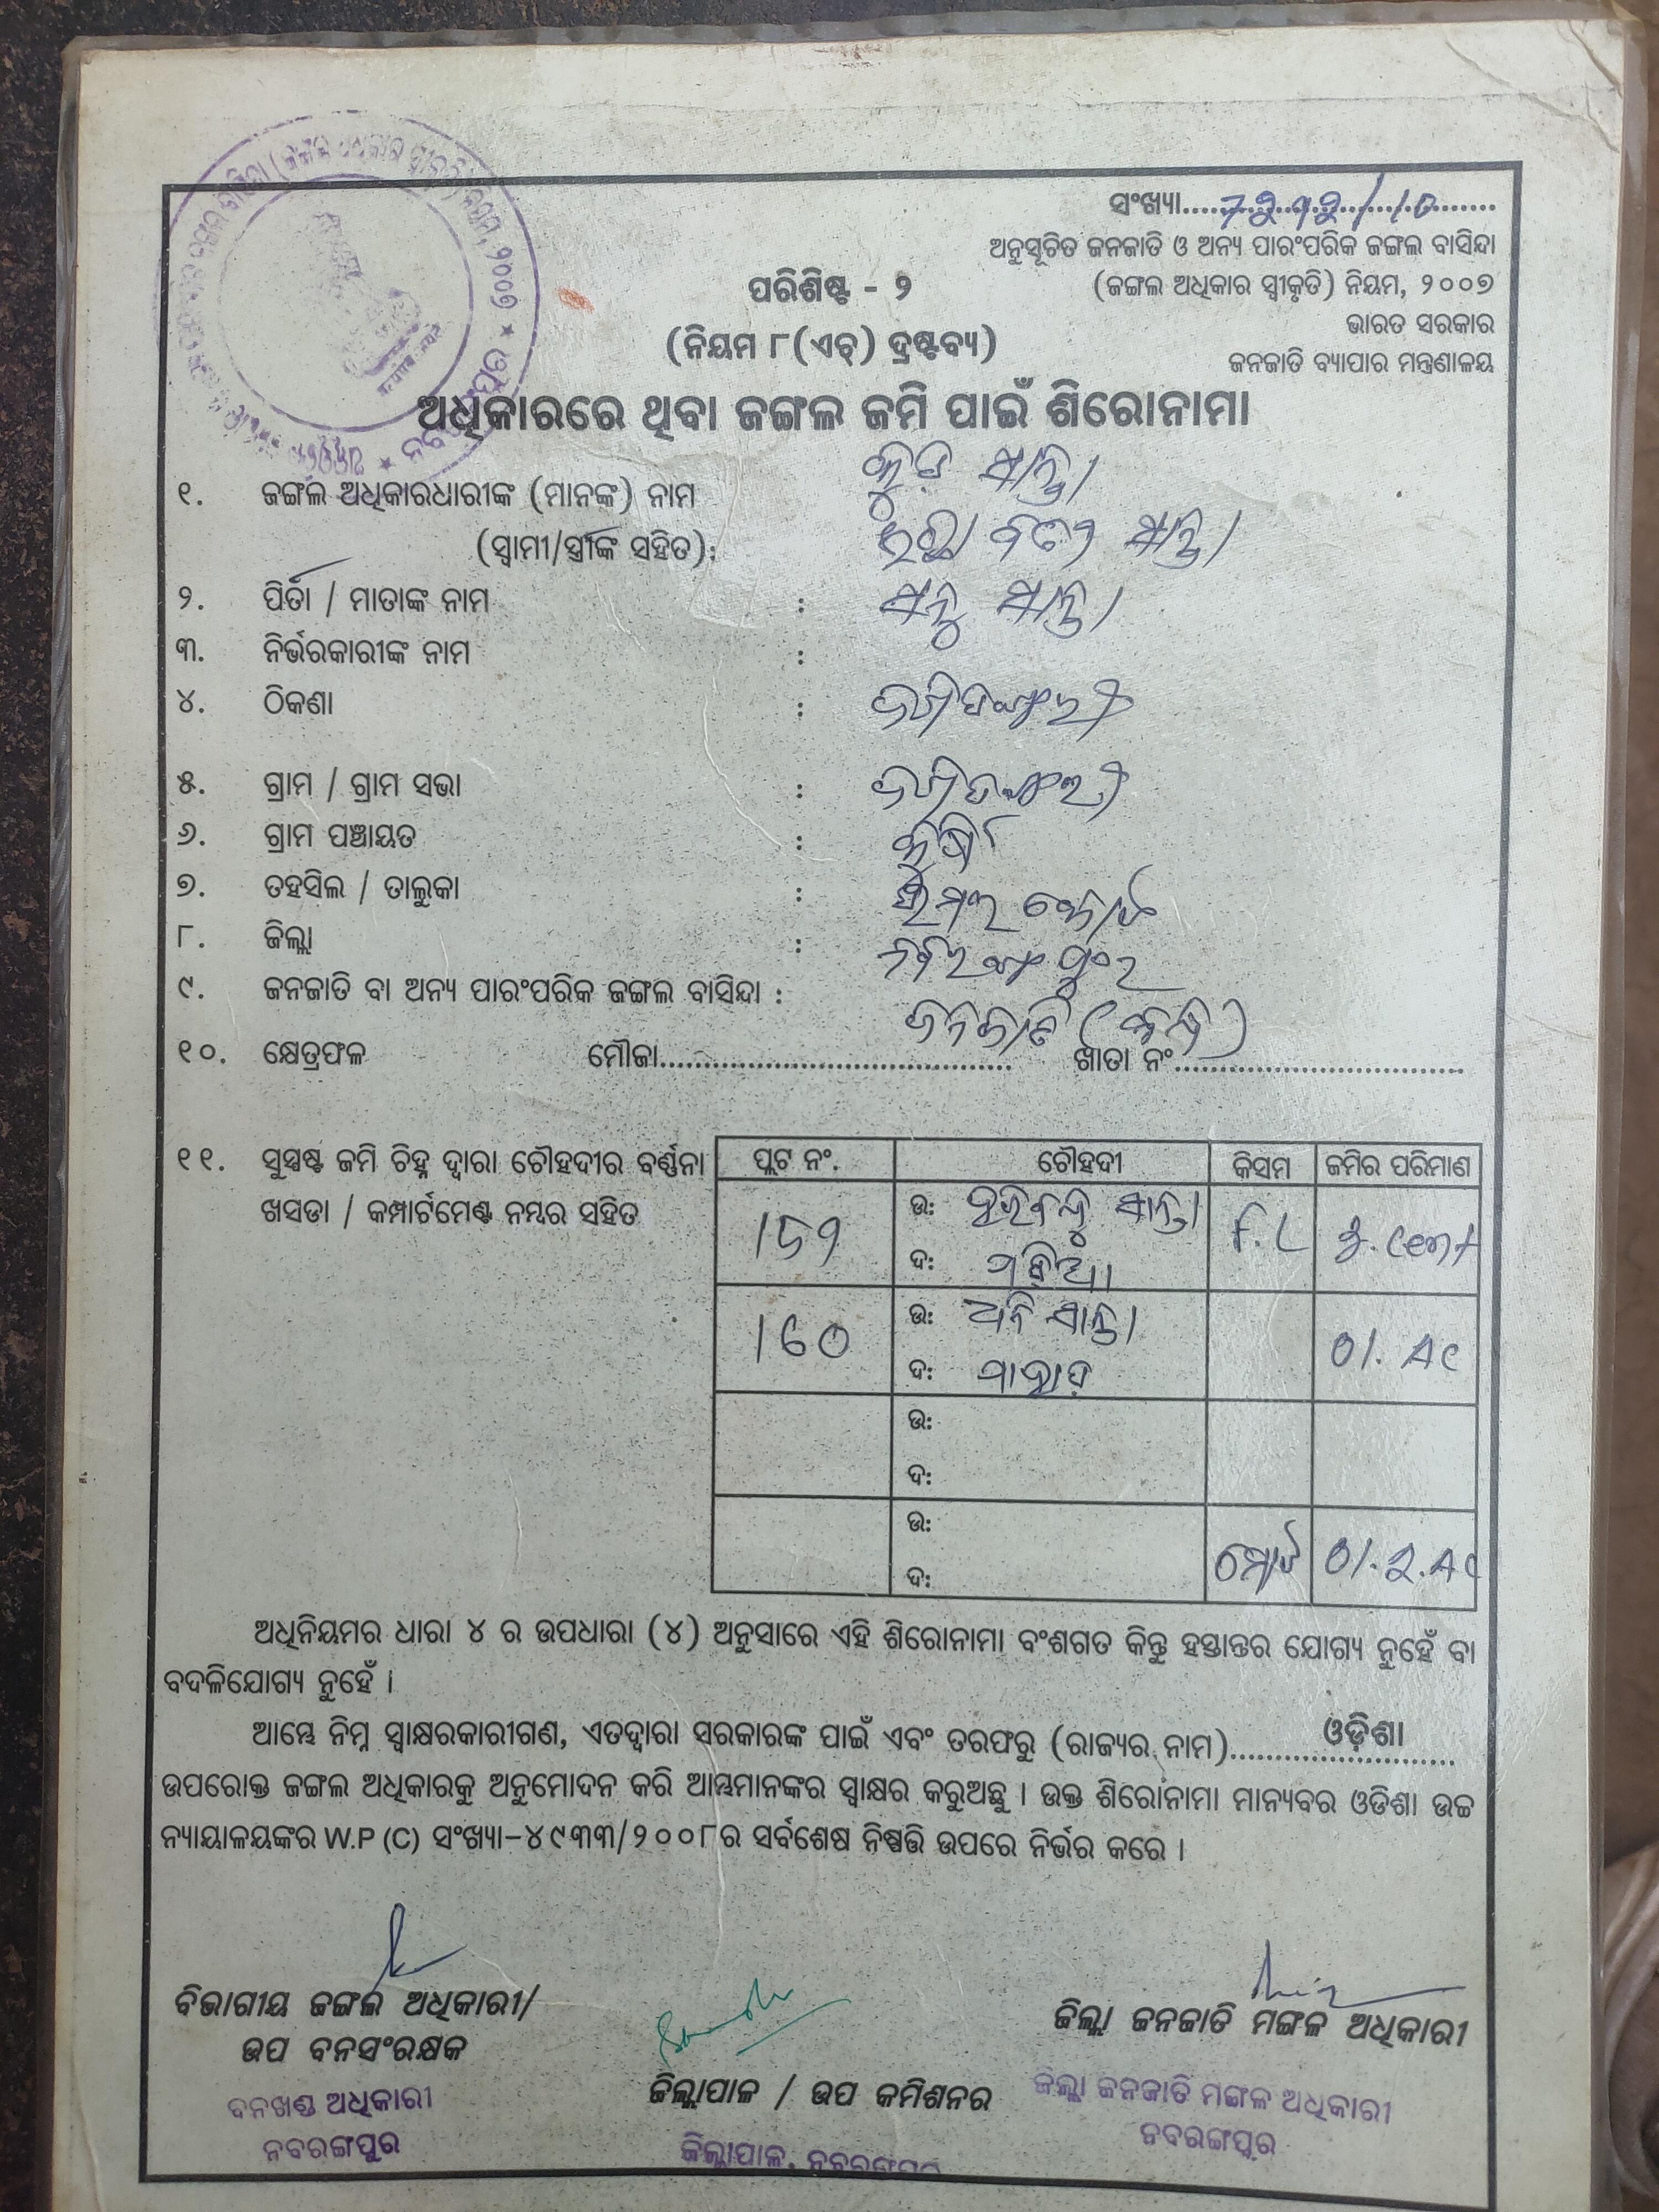 ସଂଖ୍ୟା
ଅନୁସୂଚିତ ଜନଜାତି ଓ ଅନ୍ୟ ପାରଂପରିକ ଜଙ୍ଗଲ ବାସିନ୍ଦା
(ଜଙ୍ଗଲ ଅଧିକାର ସ୍ୱୀକୃତି) ନିୟମ, ୨୦୦୭
ଭାରତ ସରକାର
ଜନଜାତି ବ୍ୟାପାର ମନ୍ତ୍ରଣାଳୟ
ପରିଶିଷ୍ଟ - ୨
(ନିୟମ ୮(ଏଚ୍) ଦ୍ରଷ୍ଟବ୍ୟ)
ଅଧିକାରରେ ଥିବା ଜଙ୍ଗଲ ଜମି ପାଇଁ ଶିରୋନାମା
୧. ଜଙ୍ଗଲ ଅଧିକାରଧାରୀଙ୍କ (ମାନଙ୍କ) ନାମ ସାନ୍ତା
(ସ୍ୱାମୀ/ସ୍ତ୍ରୀଙ୍କ ସହିତ): ସାନ୍ତା
୨. ପିତା / ମାତାଙ୍କ ନାମ : ସାନ୍ତା
୩. ନିର୍ଭରକାରୀଙ୍କ ନାମ :
୪. ଠିକଣା :
୫. ଗ୍ରାମ / ଗ୍ରାମ ସଭା :
୬. ଗ୍ରାମ ପଞ୍ଚାୟତ :
୭. ତହସିଲ / ତାଲୁକା :
୮. ଜିଲ୍ଲା : ନବରଙ୍ଗପୁର
୯. ଜନଜାତି ବା ଅନ୍ୟ ପାରଂପରିକ ଜଙ୍ଗଲ ବାସିନ୍ଦା : ଜନଜାତି
୧୦. କ୍ଷେତ୍ରଫଳ ମୌଜା ଖାତା ନଂ
୧୧. ସୁସ୍ପଷ୍ଟ ଜମି ଚିହ୍ନ ଦ୍ୱାରା ଚୌହଦୀର ବର୍ଣ୍ଣନା
ଖସଡା / କମ୍ପାର୍ଟମେଣ୍ଟ ନମ୍ବର ସହିତ
ପ୍ଲଟ ନଂ. ଚୌହଦୀ କିସମ ଜମିର ପରିମାଣ
ଉ: ସାନ୍ତା F.L Cent
ଦ: ପଡ଼ିଆ
160 ଉ: ସାନ୍ତା 01. Ac
ଦ: ପାହାଡ଼
ଉ:
ଦ:
ଉ:
ଦ: ମୋଟ 01.2.Ac
ଅଧିନିୟମର ଧାରା ୪ ର ଉପଧାରା (୪) ଅନୁସାରେ ଏହି ଶିରୋନାମା ବଂଶଗତ କିନ୍ତୁ ହସ୍ତାନ୍ତର ଯୋଗ୍ୟ ନୁହେଁ ବା
ବଦଳିଯୋଗ୍ୟ ନୁହେଁ ।
ଆମ୍ଭେ ନିମ୍ନ ସ୍ୱାକ୍ଷରକାରୀଗଣ, ଏତଦ୍ୱାରା ସରକାରଙ୍କ ପାଇଁ ଏବଂ ତରଫରୁ (ରାଜ୍ୟର ନାମ) ଓଡ଼ିଶା
ଉପରୋକ୍ତ ଜଙ୍ଗଲ ଅଧିକାରକୁ ଅନୁମୋଦନ କରି ଆମ୍ଭମାନଙ୍କର ସ୍ୱାକ୍ଷର କରୁଅଛୁ । ଉକ୍ତ ଶିରୋନାମା ମାନ୍ୟବର ଓଡିଶା ଉଚ୍ଚ
ନ୍ୟାୟାଳୟଙ୍କର W.P (C) ସଂଖ୍ୟା-୪୯୩୩/୨୦୦୮ର ସର୍ବଶେଷ ନିଷ୍ପତ୍ତି ଉପରେ ନିର୍ଭର କରେ ।
ବିଭାଗୀୟ ଜଙ୍ଗଲ ଅଧିକାରୀ/
ଉପ ବନସଂରକ୍ଷକ
ବନଖଣ୍ଡ ଅଧିକାରୀ
ନବରଙ୍ଗପୁର
ଜିଲ୍ଲାପାଳ / ଉପ କମିଶନର
ଜିଲ୍ଲାପାଳ, ନବରଙ୍ଗପୁର
ଜିଲ୍ଲା ଜନଜାତି ମଙ୍ଗଳ ଅଧିକାରୀ
ଜିଲ୍ଲା ଜନଜାତି ମଙ୍ଗଳ ଅଧିକାରୀ
ନବରଙ୍ଗପୁର